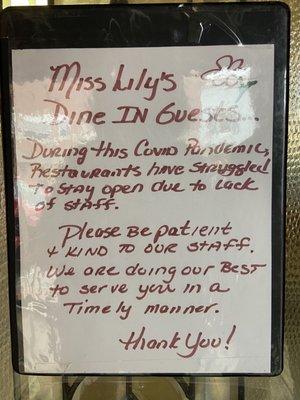 Miss Lily's
Dine IN Guests...
During this Covid Pandemic,
Restaurants have struggled
To stay open due to lack
of staff.
Please Be patient
& KIND TO OUR STAFF.
We are doing our BEST
to serve you in a
Timely manner.
Thank You!